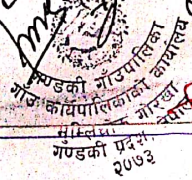 गण्डकी गाउँपालिका
गाउँ कार्यपालिकाको कार्यालय
गोरखा
गण्डकी प्रदेश, नेपाल
२०७३